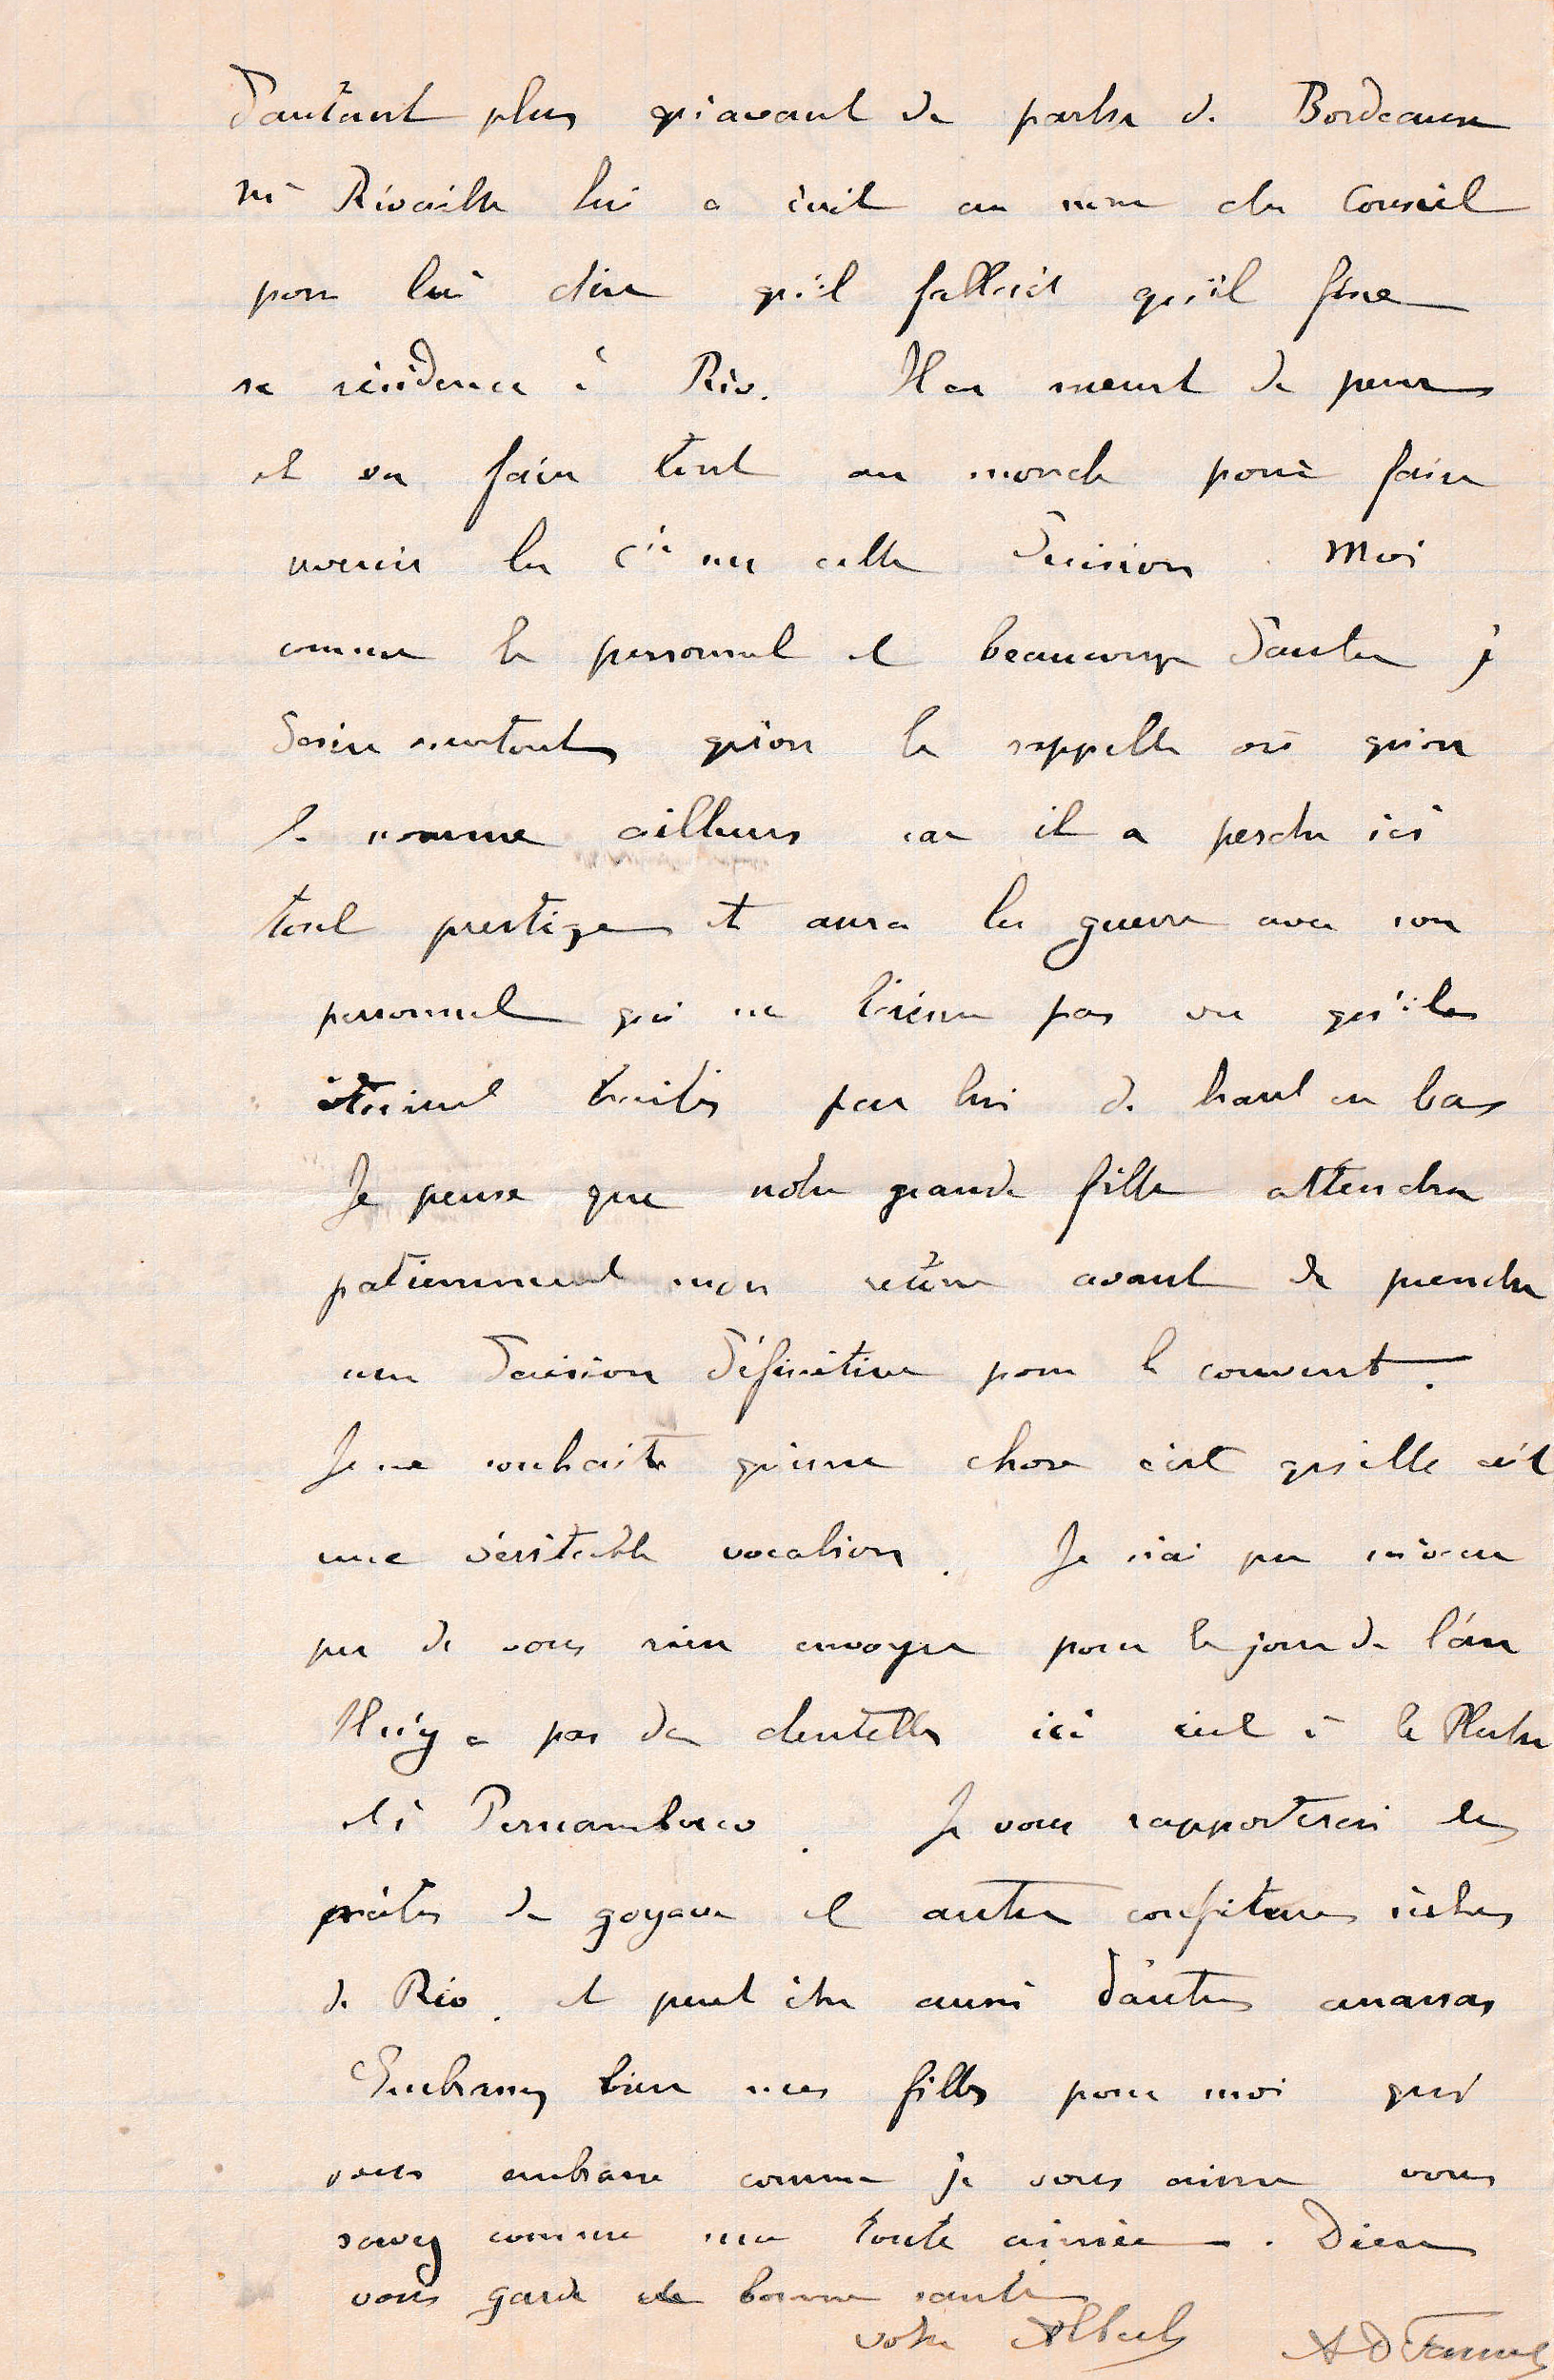 d'autant plus qu'avant de partir de Bordeaux
Mr Rivaille lui a écrit au nom du Conseil
pour lui dire qu'il fallait qu'il fixe
sa résidence à Rio. Il en meurt de peur
et va faire tout au monde pour faire
revenir la Cie sur cette décision. Moi
comme le personnel et beaucoup d'autres je
désire surtout qu'on le rappelle où qu'on
le nomme ailleurs car il a perdu ici
tout prestige et aura la guerre avec son
personnel qui ne l'aime pas vu qu'ils
étaient traités par lui de haut en bas
Je pense que notre grande fille attendra
patiemment mon retour avant de prendre
une décision définitive pour le couvent.
Je ne souhaite qu'une chose c'est qu'elle ait
une véritable vocation. Je n'ai pu
pu de vous rien envoyer pour le jour de l'an
Il n'y a pas de dentelles ici c'est à la Plata
et à Pernambuco. Je vous rapporterai des
pâtes de goyave et autres confitures sèches
de Rio. et peut être aussi d'autres ananas
Embrassez bien mes filles pour moi qui
vous embrasse comme je vous aime vous
savez comme ma toute aimée. Dieu
vous garde de bonne santé
votre Albert